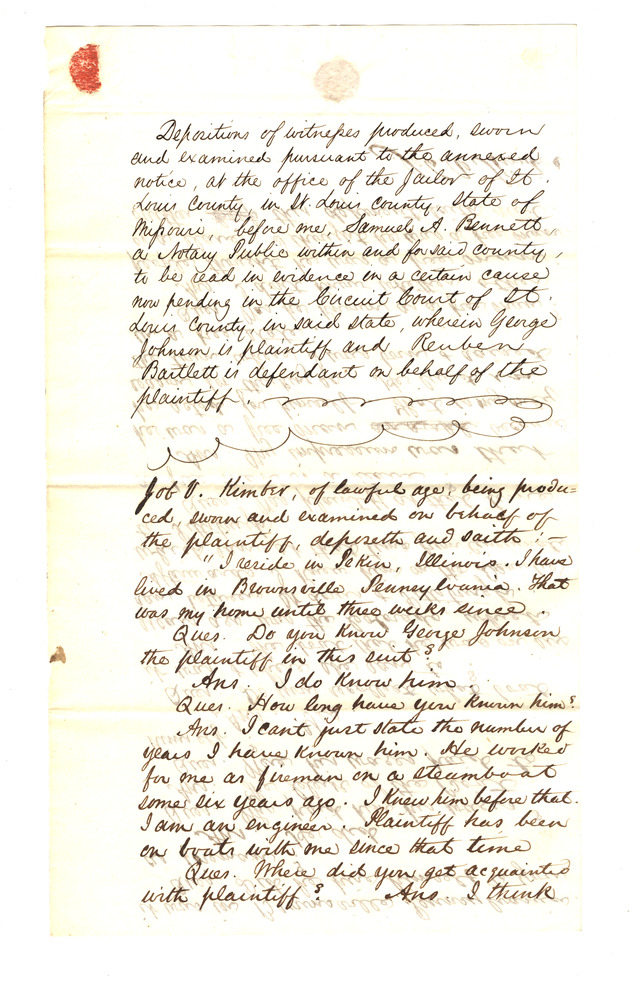 Depositions of witnesses produced, sworn
and examined pursuant to the annexed
notice, at the office of the Jailor of St.
Louis County, in St. Louis county, State of
Missouri, before me, Samuel A. Bennett
a Notary Public within and for said county,
to be read in evidence in a certain cause
now pending in the Circuit Court of St.
Louis County, in said state, wherein George
Johnson is plaintiff and Reuben
Bartlett is defendant on behalf of the
plaintiff.
Job V. Kimber, of lawful age, being produ=
ced, sworn and examined on behalf of
the plaintiff, deposeth and saith :—
"I reside in Pekin, Illinois. I have
lived in Brownsville Pennsylvania. That
was my home until three weeks since.
Ques. Do you know George Johnson
the plaintiff in this suit?
Ans. I do know him
Ques. How long have you known him?
Ans. I cant just state the number of
years I have known him. He worked
for me as fireman on a steamboat
some six years ago. I knew him before that.
I am an engineer. Plaintiff has been
on boats with me since that time
Ques. Where did you get acquainted
with plaintiff? Ans I think